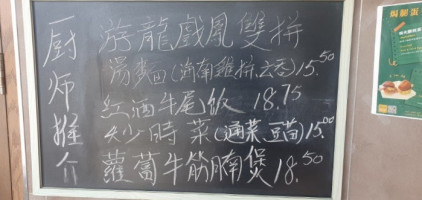 厨师推介
游龍戲鳳雙拼
湯麵(海南雞拼云吞)15.50
紅酒牛尾飯 18.75
炒時菜(通菜豆苗)15.00
蘿蔔牛筋腩煲18.50
焗腿蛋